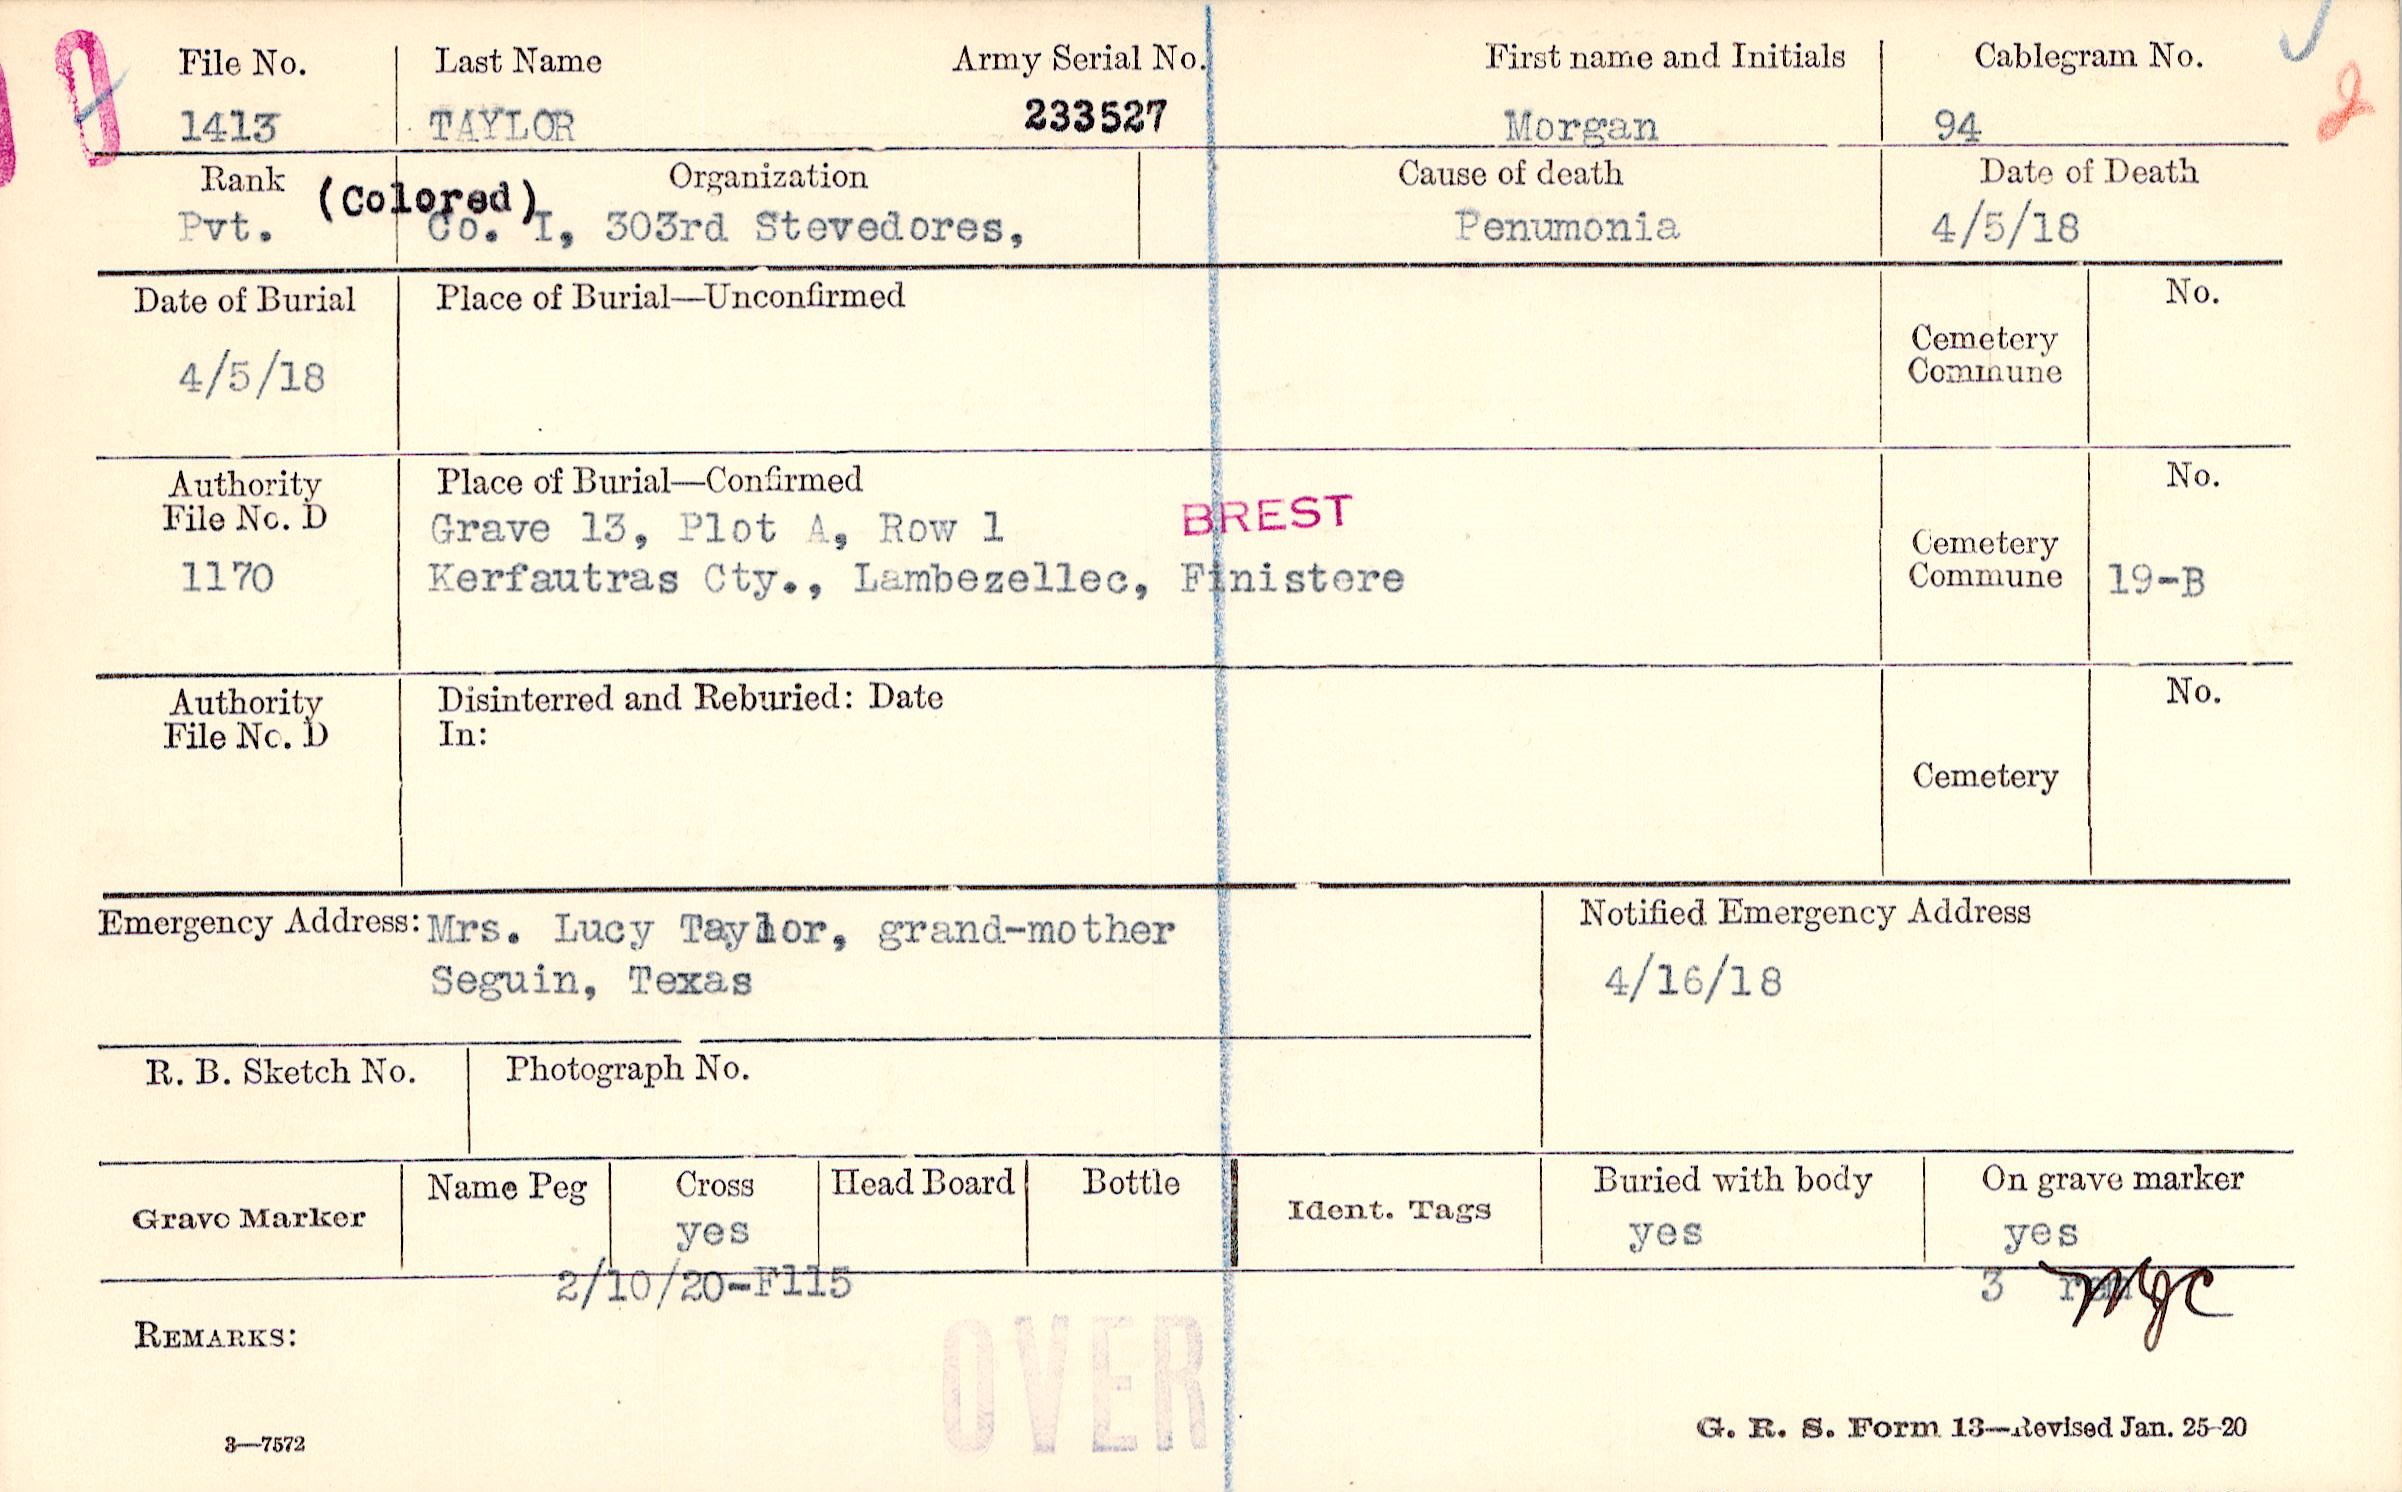 File No. Last Name Army Serial No. First name and Initials Cablegram No.
1413 TAYLOR 233527 Morgan 94
Rank Organization Cause of death Date of Death
(Colored)
Pvt. Co. I, 303rd Stevedores, Penumonia 4/5/18
Date of Burial Place of Burial—Unconfirmed No.
Cemetery
Commune
4/5/18
Authority Place of Burial—Confirmed No.
File No. D
BREST
Grave 13, Plot A, Row 1
Cemetery
1170 Kerfautras Cty., Lambezellec, Finistere Commune 19-B
Authority Disinterred and Reburied: Date No.
File No. D In:
Cemetery
Emergency Address: Mrs. Lucy Taylor, grand-mother Notified Emergency Address
Seguin, Texas 4/16/18
R. B. Sketch No. Photograph No.
Name Peg Cross Head Board Bottle Buried with body On grave marker
Grave Marker Ident. Tags
yes yes yes
2/10/20-F115 3
MJC
REMARKS:
OVER
3—7572 G. R. S. Form 13—Revised Jan. 25-20